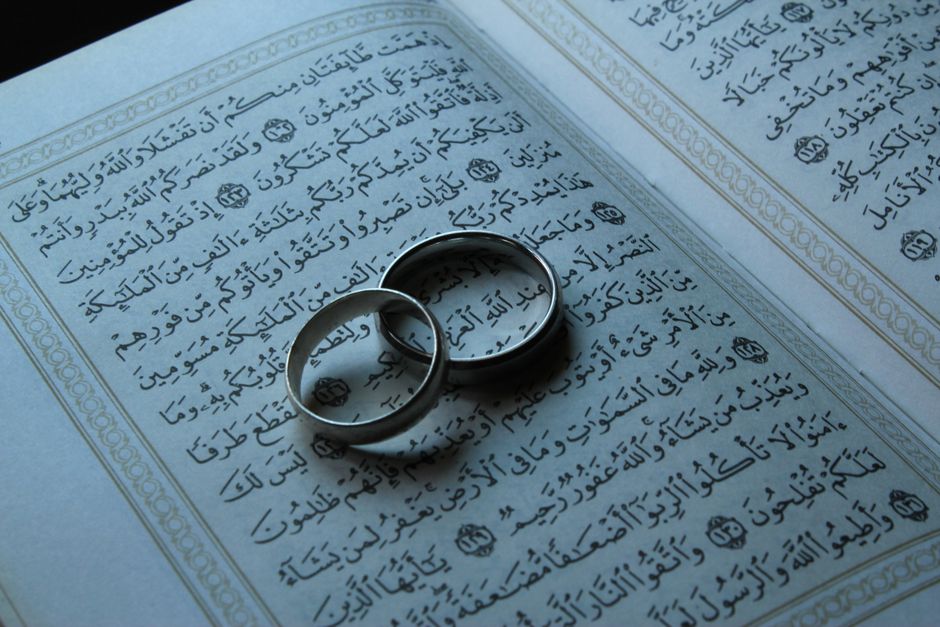 إِذْ هَمَّت طَّآئِفَتَانِ مِنكُمْ أَن تَفْشَلَا وَٱللَّهُ وَلِيُّهُمَا ۗ وَعَلَى
ٱللَّهِ فَلْيَتَوَكَّلِ ٱلْمُؤْمِنُونَ ١٢٢ وَلَقَدْ نَصَرَكُمُ ٱللَّهُ بِبَدْرٍ وَأَنتُمْ
أَذِلَّةٌ ۖ فَٱتَّقُوا۟ ٱللَّهَ لَعَلَّكُمْ تَشْكُرُونَ ١٢٣ إِذْ تَقُولُ لِلْمُؤْمِنِينَ
أَلَن يَكْفِيَكُمْ أَن يُمِدَّكُمْ رَبُّكُم بِثَلَٰثَةِ ءَالَٰفٍ مِّنَ ٱلْمَلَٰٓئِكَةِ
مُنزَلِينَ ١٢٤ بَلَىٰٓ ۚ إِن تَصْبِرُوا۟ وَتَتَّقُوا۟ وَيَأْتُوكُم مِّن فَوْرِهِمْ
هَٰذَا يُمْدِدْكُمْ رَبُّكُم ءَالَٰفٍ مِّنَ ٱلْمَلَٰٓئِكَةِ مُسَوِّمِينَ
١٢٥ وَمَا جَعَلَهُ إِلَّا بُشْرَىٰ وَلِتَطْمَئِنَّ قُلُوبُكُم بِهِۦ ۗ وَمَا
ٱلنَّصْرُ إِلَّا مِنْ عِندِ ٱللَّهِ ٱلْعَزِيزِ ٱلْحَكِيمِ ١٢٦ لِيَقْطَعَ طَرَفًا
مِّنَ ٱلَّذِينَ كَفَرُوٓا۟ ١٢٧ لَيْسَ لَكَ
مِنَ ٱلْأَمْرِ شَىْءٌ أَوْ يَتُوبَ عَلَيْهِمْ أَوْ يُعَذِّبَهُمْ فَإِنَّهُمْ ظَٰلِمُونَ
١٢٨ وَلِلَّهِ مَا فِى ٱلسَّمَٰوَٰتِ وَمَا فِى ٱلْأَرْضِ ۚ يَغْفِرُ لِمَن يَشَآءُ
وَيُعَذِّبُ مَن يَشَآءُ ۚ وَٱللَّهُ غَفُورٌ رَّحِيمٌ ١٢٩ يَٰٓأَيُّهَا ٱلَّذِينَ
ءَامَنُوا۟ لَا تَأْكُلُوا۟ ٱلرِّبَوٰٓا۟ أَضْعَٰفًا مُّضَٰعَفَةً ۖ وَٱتَّقُوا۟
لَعَلَّكُمْ تُفْلِحُونَ ١٣٠ وَٱتَّقُوا۟ ٱلنَّارَ ٱلَّتِىٓ
١٣١ وَأَطِيعُوا۟ ٱللَّهَ وَٱلرَّسُولَ
فِيهَا
وَمَا
١١٧ يَٰٓأَيُّهَا ٱلَّذِينَ
دُونِكُمْ لَا يَأْلُونَكُمْ خَبَالًا
أَفْوَٰهِهِمْ وَمَا تُخْفِى
كُنتُمْ تَعْقِلُونَ ١١٨
بِٱلْكِتَٰبِ كُلِّهِۦ
ٱلْأَنَامِلَ
١١٩